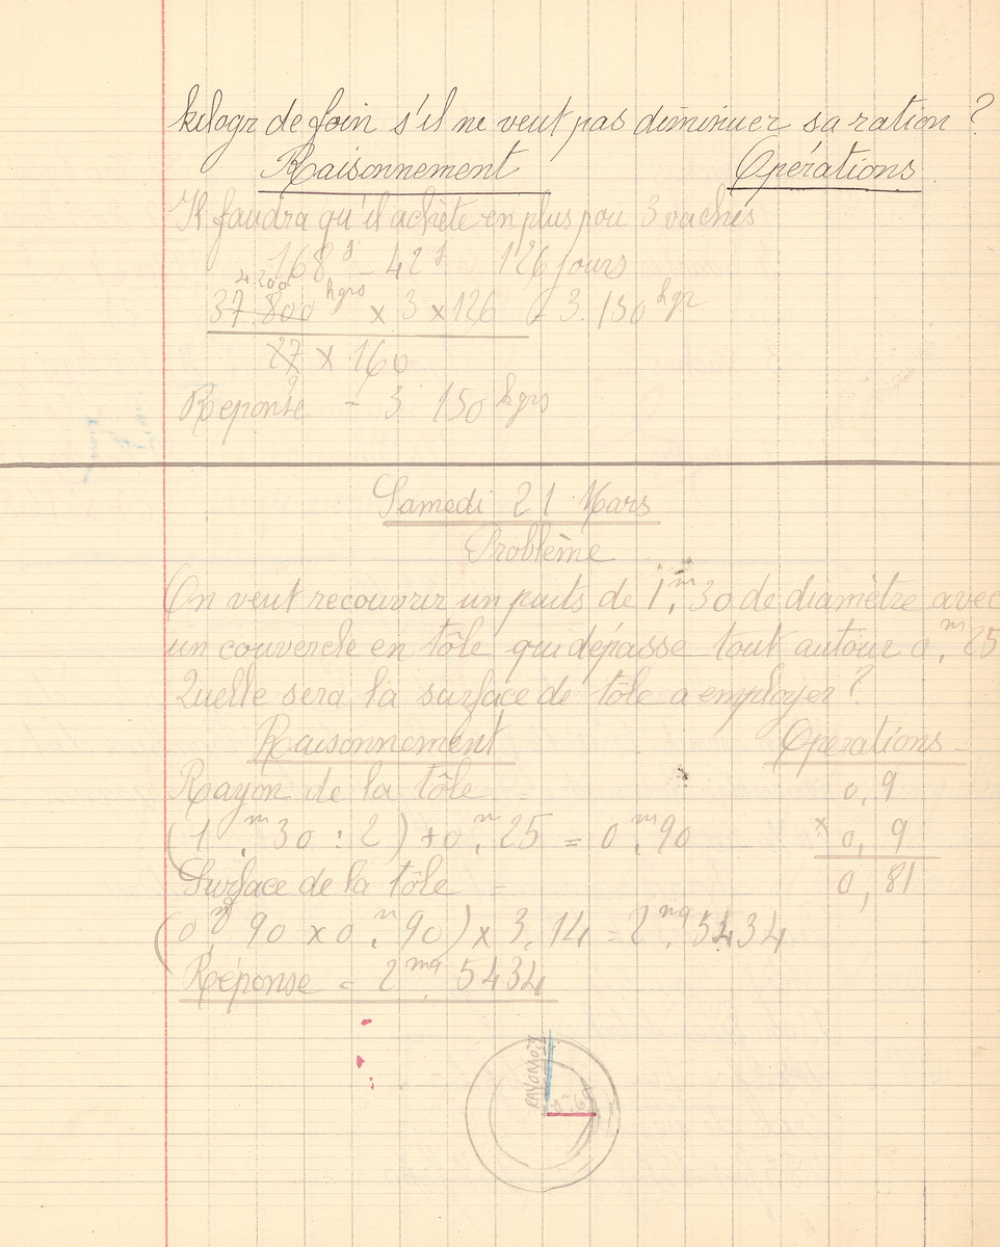 kilogr de foin s'il ne veut pas diminuer sa ration ?
Raisonnement Opérations
Il faudra qu'il achète en plus pou 3 vaches
168 j - 42 j 126 jours
4.200
37.800 kgrs x 3 x 126 = 3.150 kgr
27 x 160
9
Réponse = 3 150 kgrs
Samedi 21 Mars
Problème
On veut recouvrir un puits de 1,m30 de diamètre avec
un couvercle en tôle qui dépasse tout autour 0,m25
Quelle sera la surface de tôle a employer ?
Raisonnement Operations
Rayon de la tôle = 0,9
(1,m30 : 2) + 0,m25 = 0,m90 x 0,9
Surface de la tôle = 0,81
(0,m90 x 0,m90) x 3,14 = 2,mq5434
Réponse = 2mq,5434
RAYON